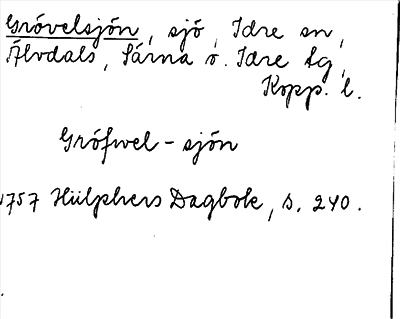 Grövelsjön, sjö, Idre sn,
Älvdals, Särna o. Idre tg,
Kopp. l.
Gröfwel-sjön
1757 Hülphers Dagbok, s. 240.